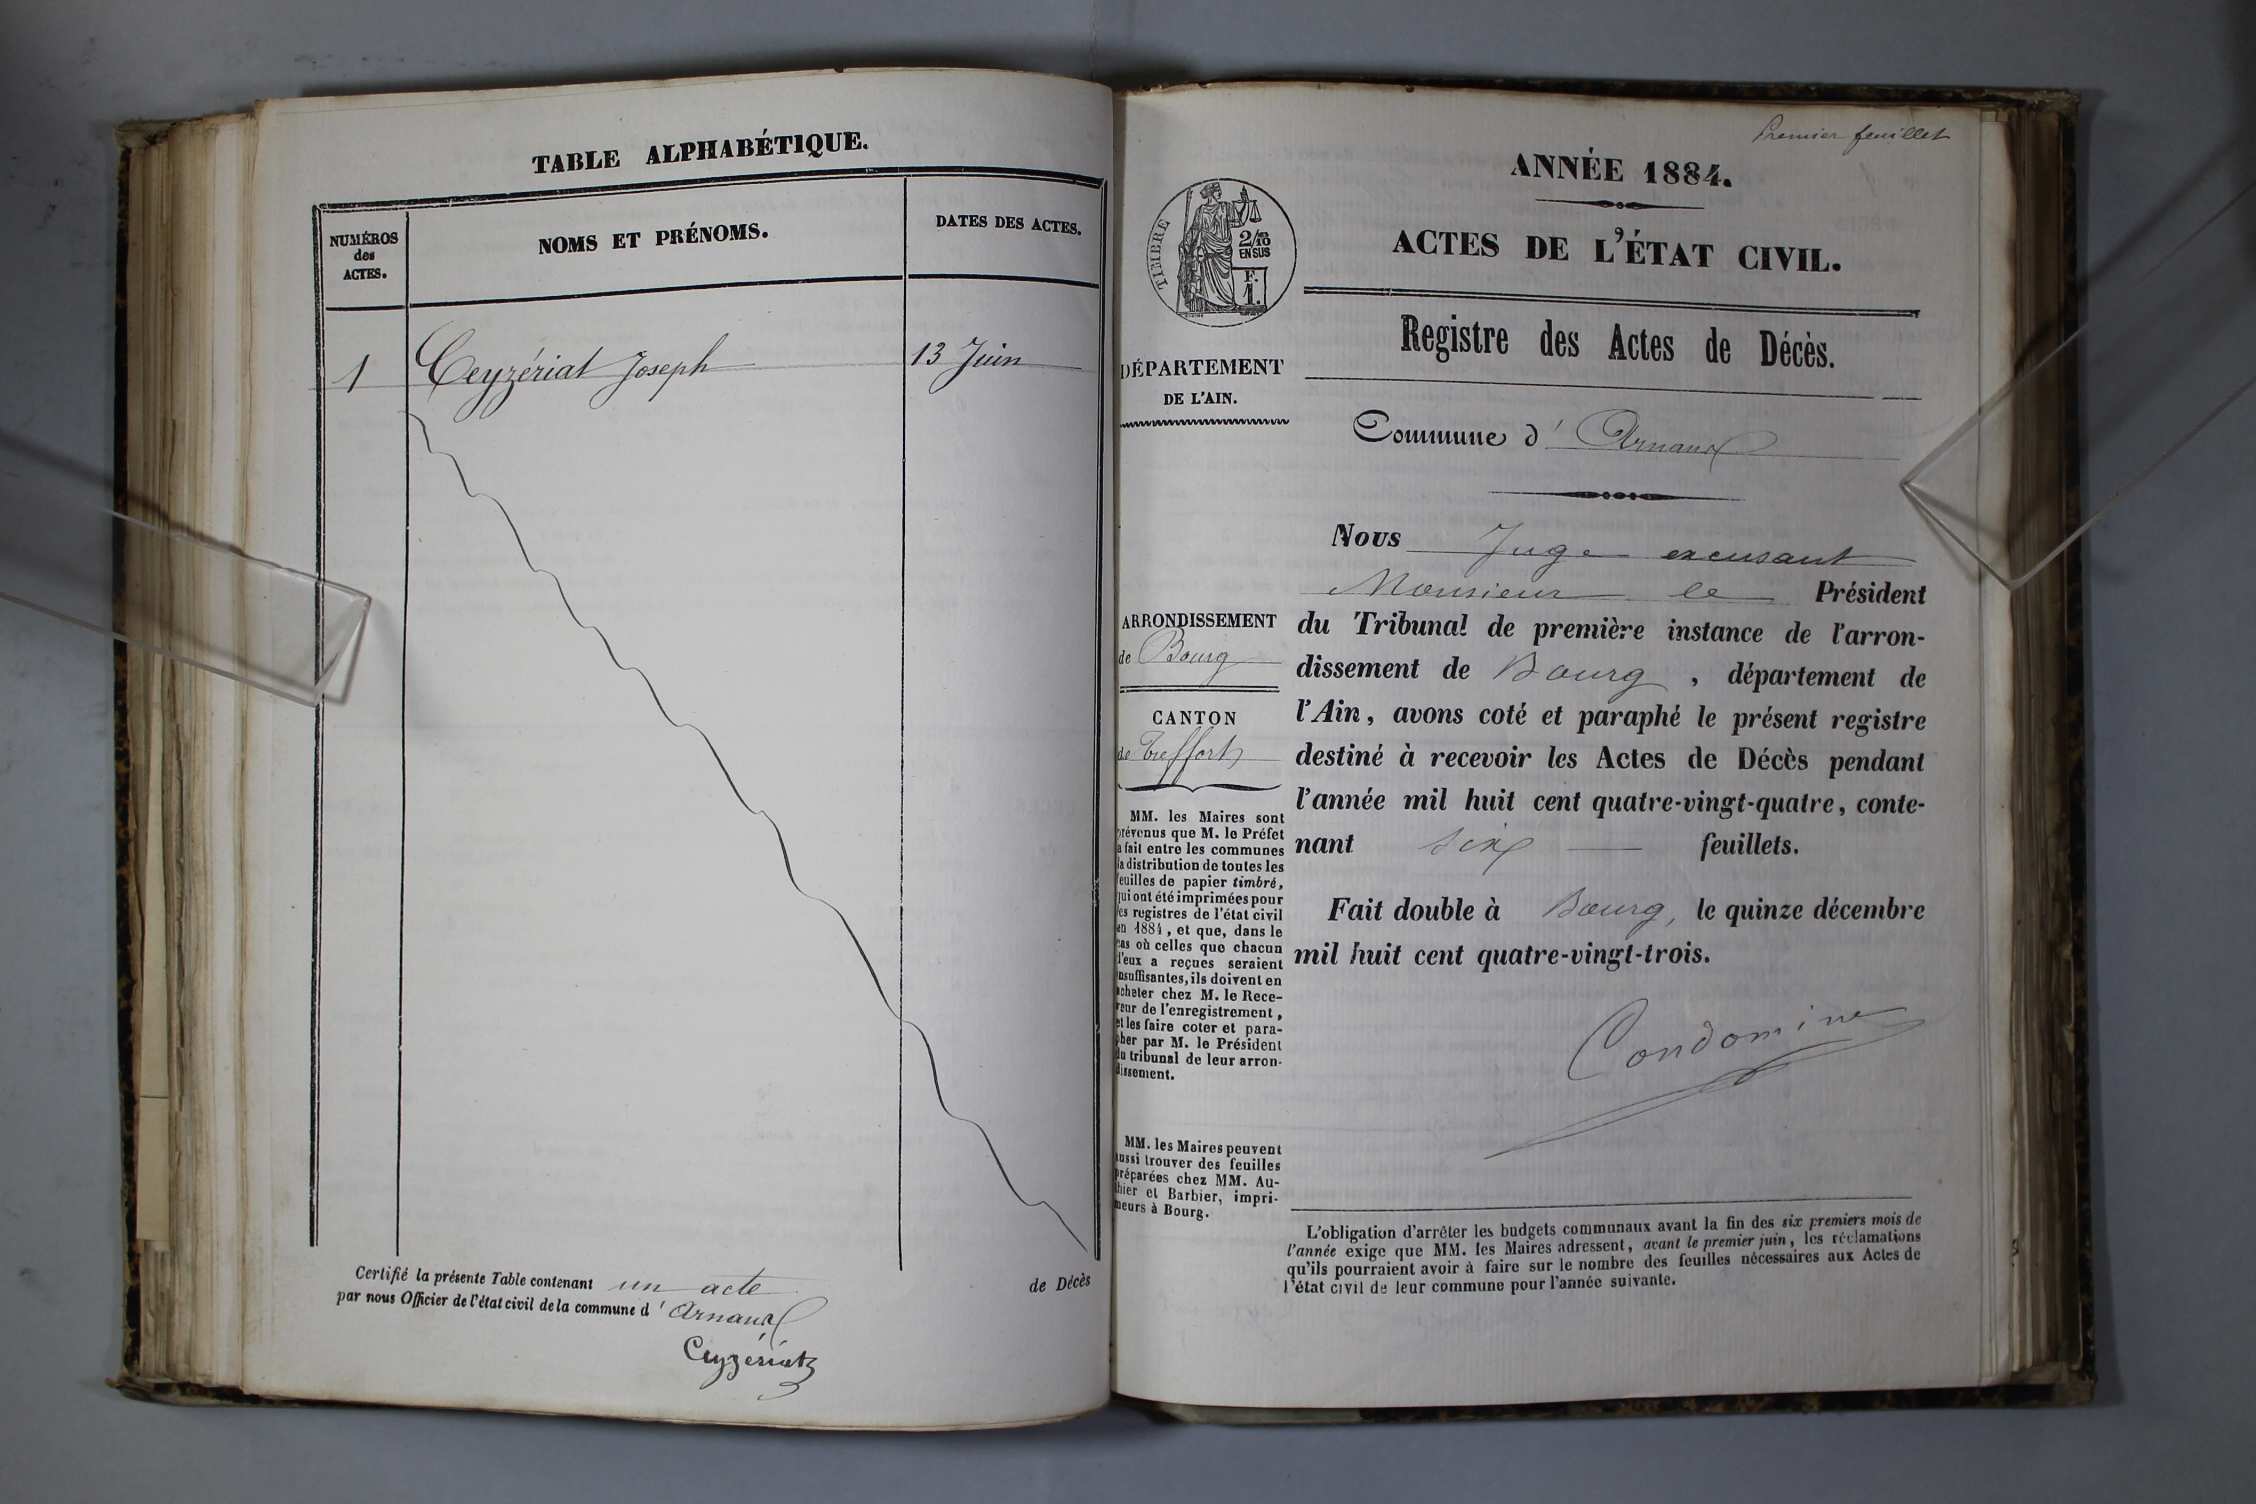 TABLE ALPHABÉTIQUE.
NUMÉROS
des
ACTES.
NOMS ET PRÉNOMS.
DATES DES ACTES.
1 Ceyzériat Joseph 13 Juin
Certifié la présente Table contenant un acte de Décès
par nous Officier de l'état civil de la commune d' Arnaux
Ceyzériat
Premier feuillet
ANNÉE 1884.
ACTES DE L'ÉTAT CIVIL.
TIMBRE
2/10
EN SUS
F.
1.
Registre des Actes de Décès.
DÉPARTEMENT
DE L'AIN.
Commune d' Arnaux
Nous Juge excusant
Monsieur le Président
du Tribunal de première instance de l'arron-
dissement de Bourg, département de
l'Ain, avons coté et paraphé le présent registre
destiné à recevoir les Actes de Décès pendant
l'année mil huit cent quatre-vingt-quatre, conte-
nant six feuillets.
Fait double à Bourg, le quinze décembre
mil huit cent quatre-vingt-trois.
Condomine
ARRONDISSEMENT
de Bourg
CANTON
de Treffort
MM. les Maires sont
prévenus que M. le Préfet
a fait entre les communes
la distribution de toutes les
feuilles de papier timbré,
qui ont été imprimées pour
les registres de l'état civil
en 1884, et que, dans le
cas où celles que chacun
d'eux a reçues seraient
insuffisantes, ils doivent en
acheter chez M. le Rece-
veur de l'enregistrement,
et les faire coter et para-
pher par M. le Président
du tribunal de leur arron-
dissement.
MM. les Maires peuvent
aussi trouver des feuilles
préparées chez MM. Au-
thier et Barbier, impri-
meurs à Bourg.
L'obligation d'arrêter les budgets communaux avant la fin des six premiers mois de
l'année exige que MM. les Maires adressent, avant le premier juin, les réclamations
qu'ils pourraient avoir à faire sur le nombre des feuilles nécessaires aux Actes de
l'état civil de leur commune pour l'année suivante.